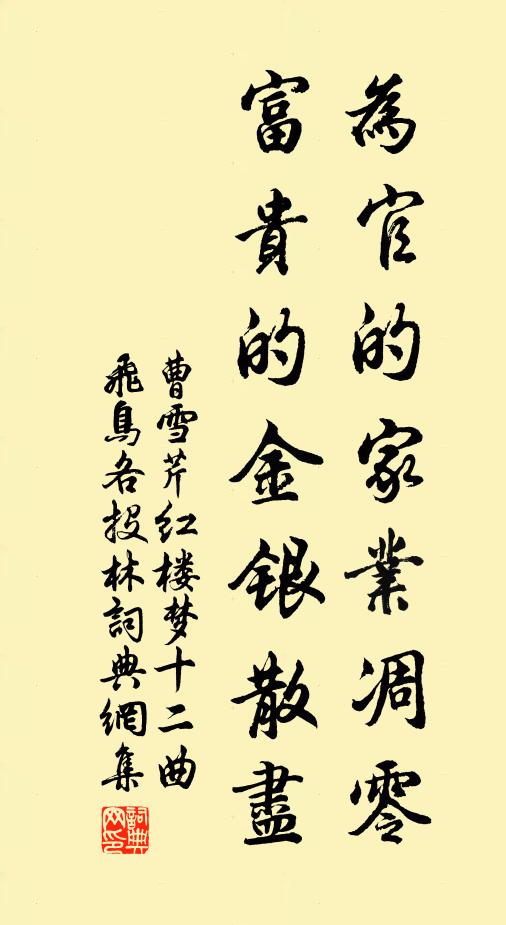 為官的家業凋零
富貴的金銀散盡
曹雪芹红楼梦十二曲
飛鳥各投林詞典網集
詞典
网印